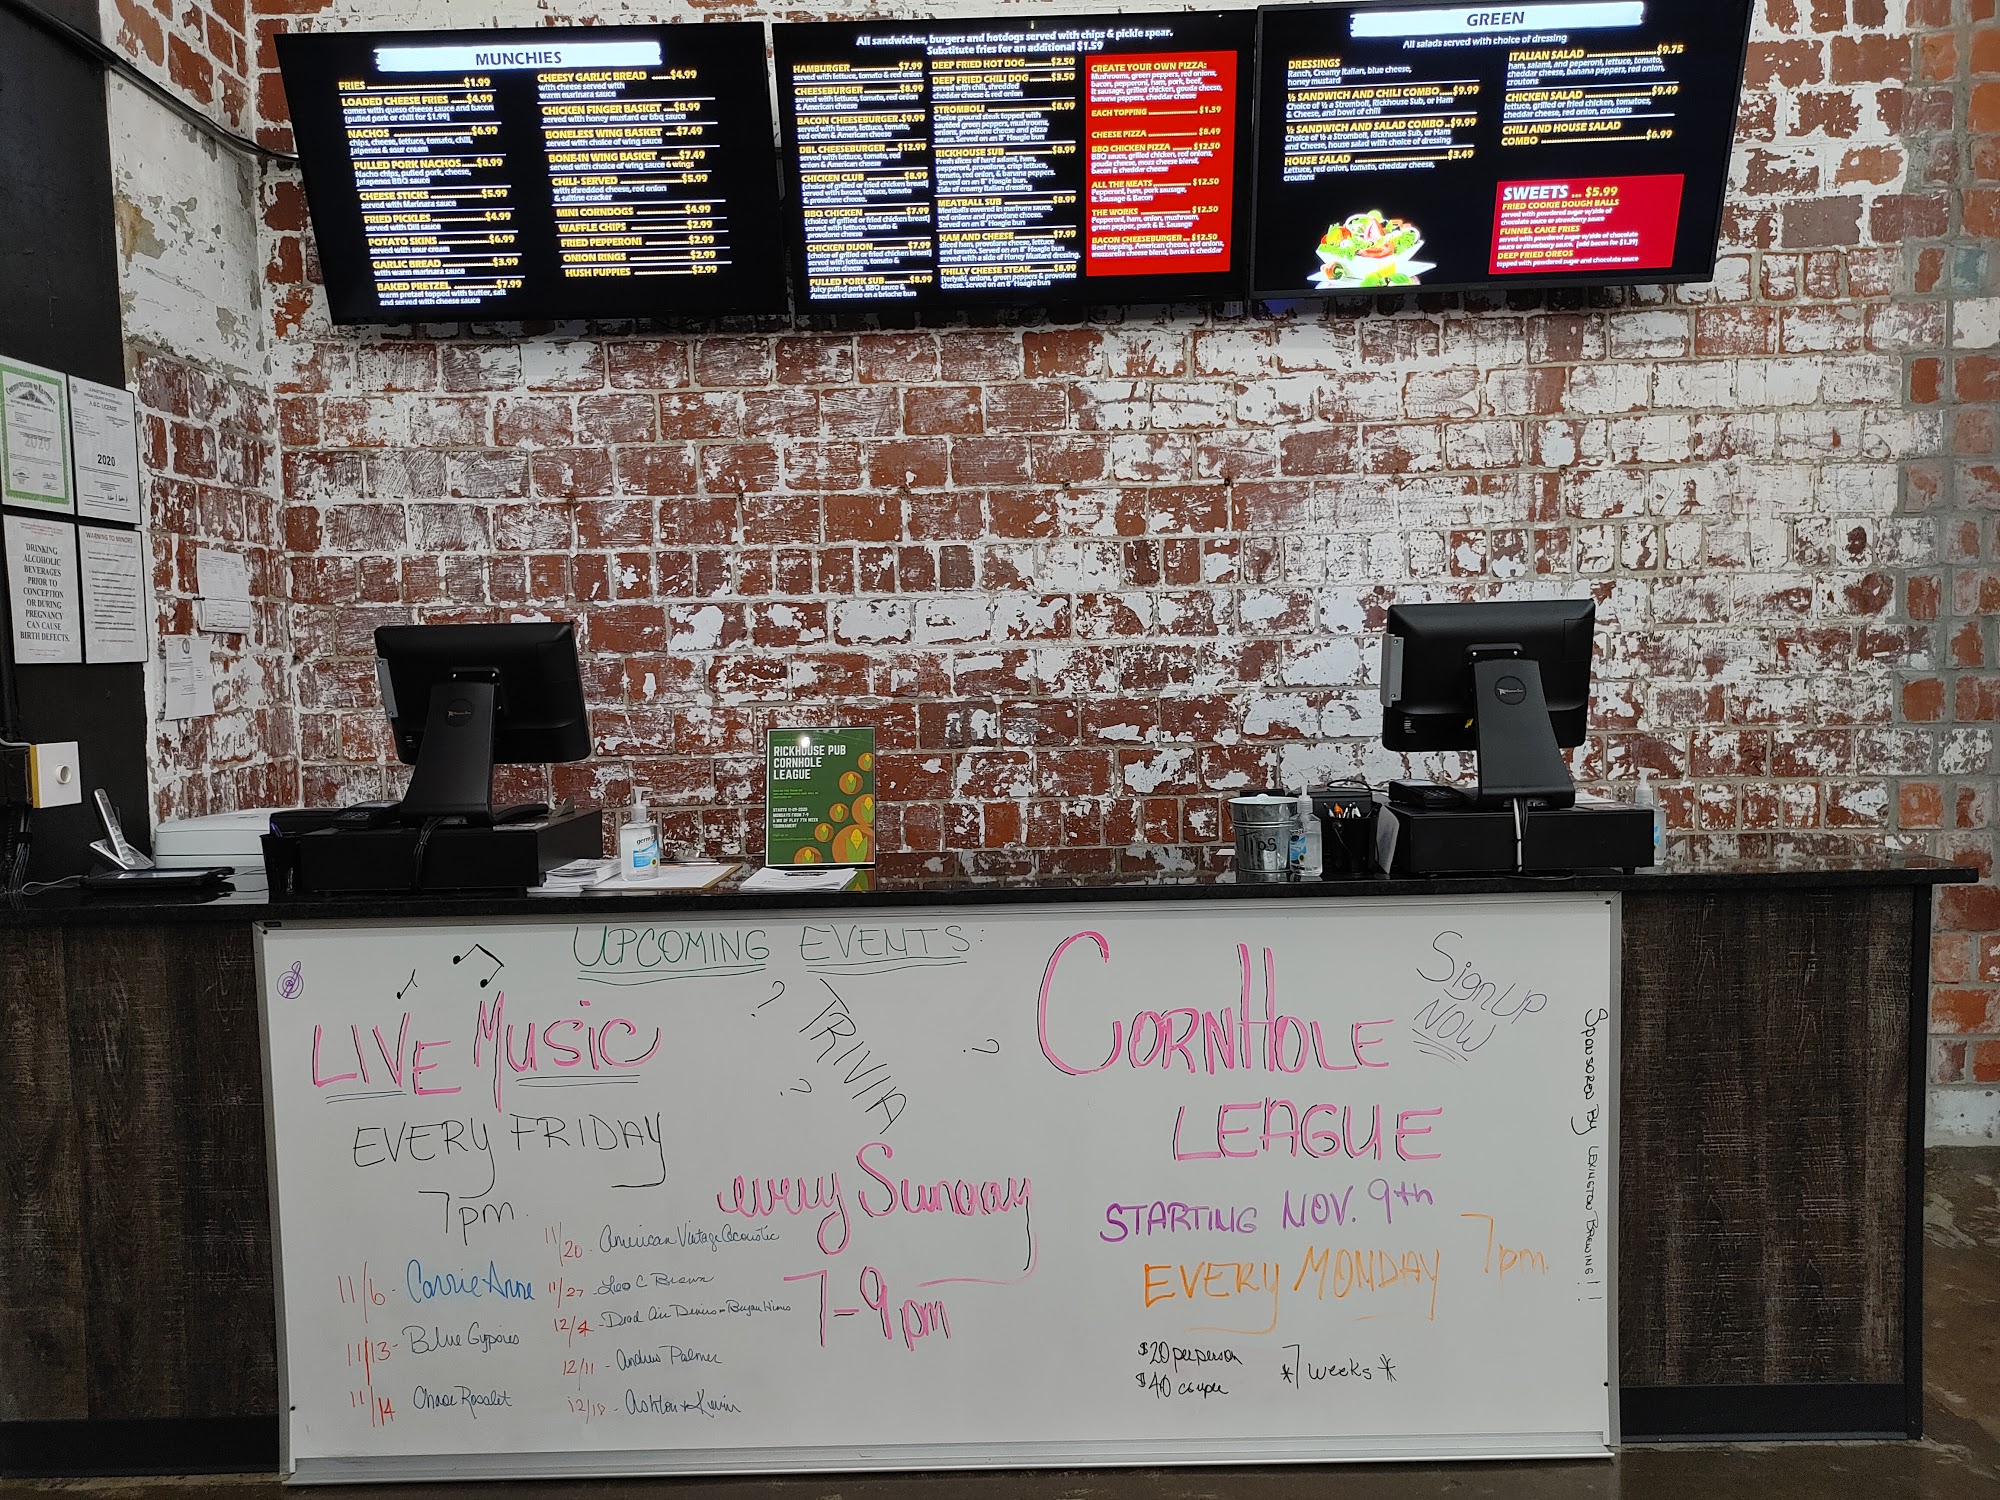 MUNCHIES
FRIES $1.99
LOADED CHEESE FRIES $4.99
comes with queso cheese sauce and bacon
(pulled pork or chili for $1.99)
NACHOS $6.99
chips, cheese, lettuce, tomato, chili,
jalpenos & sour cream
PULLED PORK NACHOS $8.99
Nacho chips, pulled pork, cheese,
jalapenos BBQ sauce
CHEESE STICKS $5.99
served with Marinara sauce
FRIED PICKLES $4.99
served with Dill sauce
POTATO SKINS $6.99
served with sour cream
GARLIC BREAD $3.99
with warm marinara sauce
BAKED PRETZEL $7.99
warm pretzel topped with butter, salt
and served with cheese sauce
CHEESY GARLIC BREAD $4.99
with cheese served with
warm marinara sauce
CHICKEN FINGER BASKET $8.99
served with honey mustard or bbq sauce
BONELESS WING BASKET $7.49
served with choice of wing sauce
BONE-IN WING BASKET $7.49
served with choice of wing sauce 6 wings
CHILI-SERVED $5.99
with shredded cheese, red onion
& saltine cracker
MINI CORNDOGS $4.99
WAFFLE CHIPS $2.99
FRIED PEPPERONI $2.99
ONION RINGS $2.99
HUSH PUPPIES $2.99
All sandwiches, burgers and hotdogs served with chips & pickle spear.
Substitute fries for an additional $1.59
HAMBURGER $7.99
served with lettuce, tomato & red onion
CHEESEBURGER $8.99
served with lettuce, tomato, red onion
& American cheese
BACON CHEESEBURGER $9.99
served with bacon, lettuce, tomato,
red onion & American cheese
DBL CHEESEBURGER $12.99
served with lettuce, tomato, red
onion & American cheese
CHICKEN CLUB $8.99
(choice of grilled or fried chicken breast)
served with bacon, lettuce, tomato
& provolone cheese.
BBQ CHICKEN $7.99
(choice of grilled or fried chicken breast)
served with lettuce, tomato &
provolone cheese
CHICKEN DIJON $7.99
(choice of grilled or fried chicken breast)
served with lettuce, tomato &
provolone cheese
PULLED PORK SUB $8.99
Juicy pulled pork, BBQ sauce &
American cheese on a brioche bun
DEEP FRIED HOT DOG $2.50
DEEP FRIED CHILI DOG $3.50
served with chili, shredded
cheddar cheese & red onion
STROMBOLI $8.99
Choice ground steak topped with
sautéed green peppers, mushrooms,
onions, provolone cheese and pizza
sauce. Served on an 8" Hoagie bun
RICKHOUSE SUB $8.99
Fresh slices of hard salami, ham,
pepperoni, provolone, crisp lettuce,
tomato, red onion, & banana peppers.
Served on an 8" Hoagie bun.
Side of creamy Italian dressing
MEATBALL SUB $8.99
Meatballs covered in marinara sauce,
red onions and provolone cheese.
Served on an 8" Hoagie bun
HAM AND CHEESE $7.99
sliced ham, provolone cheese, lettuce
and tomato. Served on an 8" Hoagie bun
served with a side of Honey Mustard dressing.
PHILLY CHEESE STEAK $8.99
(teriyaki, onions, green peppers & provolone
cheese. Served on an 8" Hoagie bun
CREATE YOUR OWN PIZZA:
Mushrooms, green peppers, red onions,
bacon, pepperoni, ham, pork, beef,
It. sausage, grilled chicken, gouda cheese,
banana peppers, cheddar cheese
EACH TOPPING $1.39
CHEESE PIZZA $8.49
BBQ CHICKEN PIZZA $12.50
BBQ sauce, grilled chicken, red onions,
gouda cheese, mozz cheese blend,
bacon & cheddar cheese
ALL THE MEATS $12.50
Pepperoni, ham, pork sausage,
It. Sausage & Bacon
THE WORKS $12.50
Pepperoni, ham, onion, mushroom,
green pepper, pork & It. Sausage
BACON CHEESEBURGER $12.50
Beef topping, American cheese, red onions,
mozzarella cheese blend, bacon & cheddar
GREEN
All salads served with choice of dressing
DRESSINGS
Ranch, Creamy Italian, blue cheese,
honey mustard
½ SANDWICH AND CHILI COMBO $9.99
Choice of ½ a Stromboli, Rickhouse Sub, or Ham
& Cheese, and bowl of chili
½ SANDWICH AND SALAD COMBO $9.99
Choice of ½ a Stromboli, Rickhouse Sub, or Ham
and Cheese, house salad with choice of dressing
HOUSE SALAD $3.49
Lettuce, red onion, tomato, cheddar cheese,
croutons
ITALIAN SALAD $9.75
ham, salami, and peperoni, lettuce, tomato,
cheddar cheese, banana peppers, red onion,
croutons
CHICKEN SALAD $9.49
lettuce, grilled or fried chicken, tomatoes,
cheddar cheese, red onion, croutons
CHILI AND HOUSE SALAD
COMBO $6.99
SWEETS ... $5.99
FRIED COOKIE DOUGH BALLS
served with powdered sugar w/side of
chocolate sauce or strawberry sauce
FUNNEL CAKE FRIES
served with powdered sugar w/side of chocolate
sauce or strawberry sauce. (add bacon for $1.39)
DEEP FRIED OREOS
topped with powdered sugar and chocolate sauce
2020
2020
DRINKING
ALCOHOLIC
BEVERAGES
PRIOR TO
CONCEPTION
OR DURING
PREGNANCY
CAN CAUSE
BIRTH DEFECTS.
WARNING TO MINORS
RICKHOUSE PUB
CORNHOLE
LEAGUE
STARTS 11-09-2020
MONDAYS FROM 7-9
6 WK OF PLAY 7TH WEEK
TOURNAMENT
TIPS
UPCOMING EVENTS:
LIVE MUSIC
EVERY FRIDAY
7pm.
11/6 - Carrie Anne
11/13 - Blue Gypsies
11/14 Chase Rosslet
11/20 - American Vintage Acoustic
11/27 - Leo C Brown
12/4 - Dead Air Dennis - Bryan Hines
12/11 - Andrew Palmer
12/18 - Ashton & Kevin
? TRIVIA ?
?
every Sunday
7-9pm
CORNHOLE
LEAGUE
Sign UP
NOW
STARTING NOV. 9th
EVERY MONDAY 7pm.
$20 per person
$40 couple
*7 weeks*
Sponsored By Lexington Brewing!!